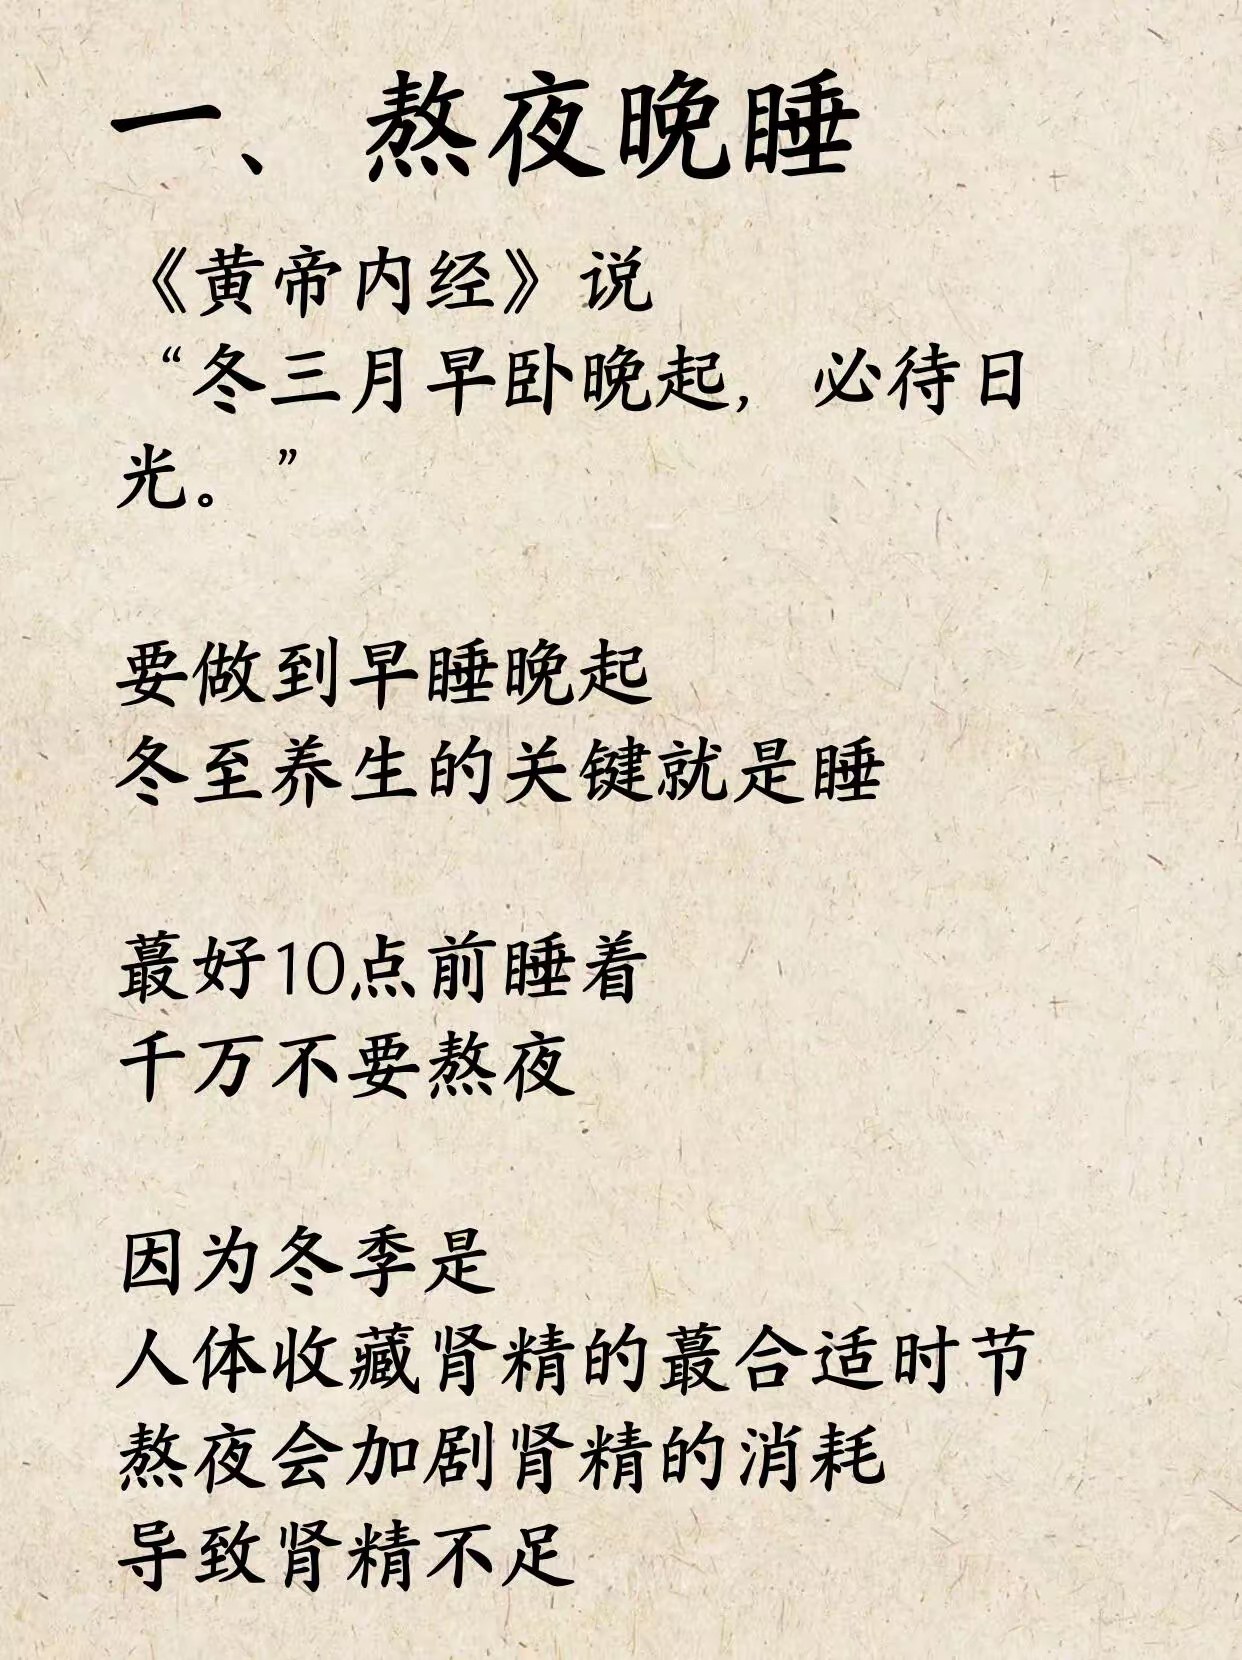 一、熬夜晚睡
《黄帝内经》说
“冬三月早卧晚起，必待日
光。”
要做到早睡晚起
冬至养生的关键就是睡
蕞好10点前睡着
千万不要熬夜
因为冬季是
人体收藏肾精的蕞合适时节
熬夜会加剧肾精的消耗
导致肾精不足